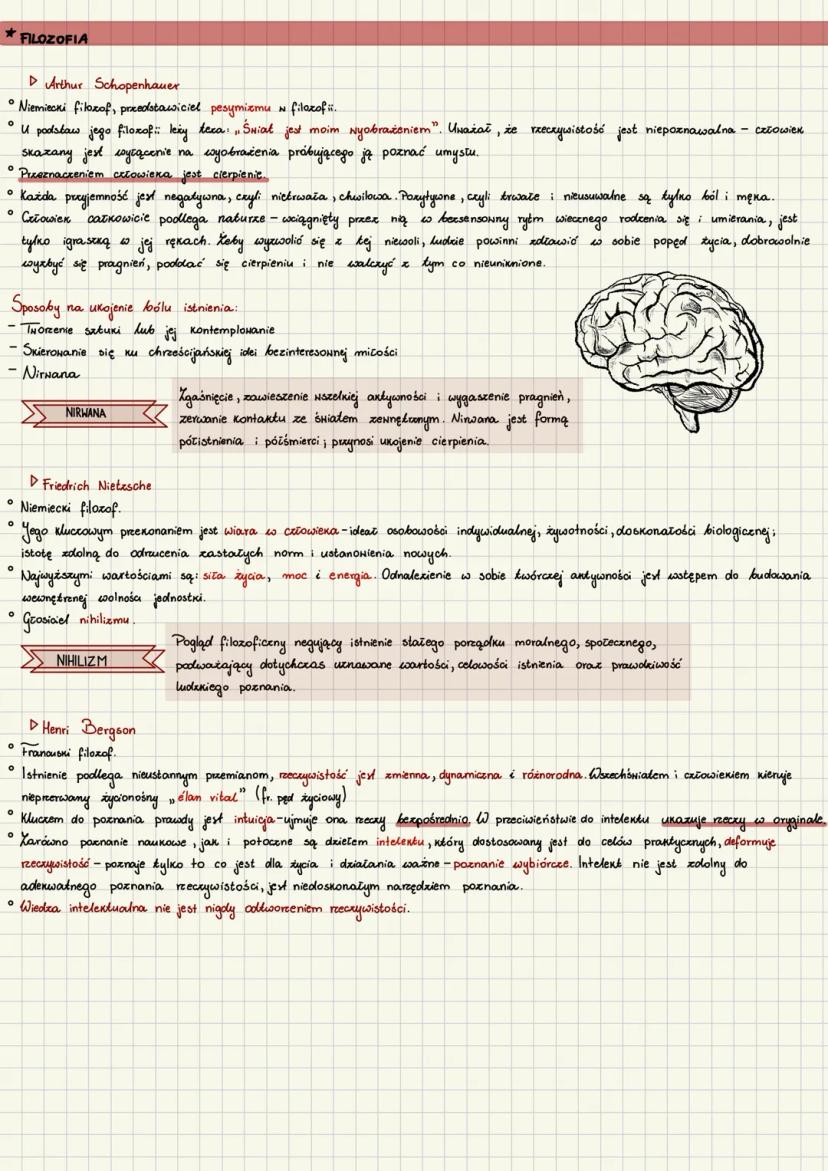 ★ FILOZOFIA
▷ Arthur Schopenhauer
° Niemiecki filozof, przedstawiciel pesymizmu w filozofii.
° U podstaw jego filozofii leży teza: „Świat jest moim wyobrażeniem”. Uważał, że rzeczywistość jest niepoznawalna – człowiek
skazany jest wyłącznie na wyobrażenia próbującego ją poznać umysłu.
° Przeznaczeniem człowieka jest cierpienie.
° Każda przyjemność jest negatywna, czyli nietrwała, chwilowa. Pozytywne, czyli trwałe i nieusuwalne są tylko ból i męka.
° Człowiek całkowicie podlega naturze – wciągnięty przez nią w bezsensowny rytm wiecznego rodzenia się i umierania, jest
tylko igraszką w jej rękach. Żeby wyzwolić się z tej niewoli, ludzie powinni zdławić w sobie popęd życia, dobrowolnie
wyzbyć się pragnień, poddać się cierpieniu i nie walczyć z tym co nieuniknione.
Sposoby na ukojenie bólu istnienia:
– Tworzenie sztuki lub jej kontemplowanie
– Skierowanie się ku chrześcijańskiej idei bezinteresownej miłości
– Nirwana
NIRWANA
Zgaśnięcie, zawieszenie wszelkiej aktywności i wygaszenie pragnień,
zerwanie kontaktu ze światem zewnętrznym. Nirwana jest formą
półistnienia i półśmierci; przynosi ukojenie cierpienia.
▷ Friedrich Nietzsche
° Niemiecki filozof.
° Jego kluczowym przekonaniem jest wiara w człowieka – ideał osobowości indywidualnej, żywotności, doskonałości biologicznej;
istotę zdolną do odrzucenia zastałych norm i ustanowienia nowych.
° Najwyższymi wartościami są: siła życia, moc i energia. Odnalezienie w sobie twórczej aktywności jest wstępem do budowania
wewnętrznej wolności jednostki.
° Głosiciel nihilizmu.
NIHILIZM
Pogląd filozoficzny negujący istnienie stałego porządku moralnego, społecznego,
podważający dotychczas uznawane wartości, celowości istnienia oraz prawdziwość
ludzkiego poznania.
▷ Henri Bergson
° Francuski filozof.
° Istnienie podlega nieustannym przemianom, rzeczywistość jest zmienna, dynamiczna i różnorodna. Wszechświatem i człowiekiem kieruje
nieprzerwany życionośny „élan vital” (fr. pęd życiowy)
° Kluczem do poznania prawdy jest intuicja – ujmuje ona rzeczy bezpośrednio. W przeciwieństwie do intelektu ukazuje rzeczy w oryginale.
° Zarówno poznanie naukowe, jak i potoczne są dziełem intelektu, który dostosowany jest do celów praktycznych, deformuje
rzeczywistość – poznaje tylko to co jest dla życia i działania ważne – poznanie wybiórcze. Intelekt nie jest zdolny do
adekwatnego poznania rzeczywistości, jest niedoskonałym narzędziem poznania.
° Wiedza intelektualna nie jest nigdy odtworzeniem rzeczywistości.